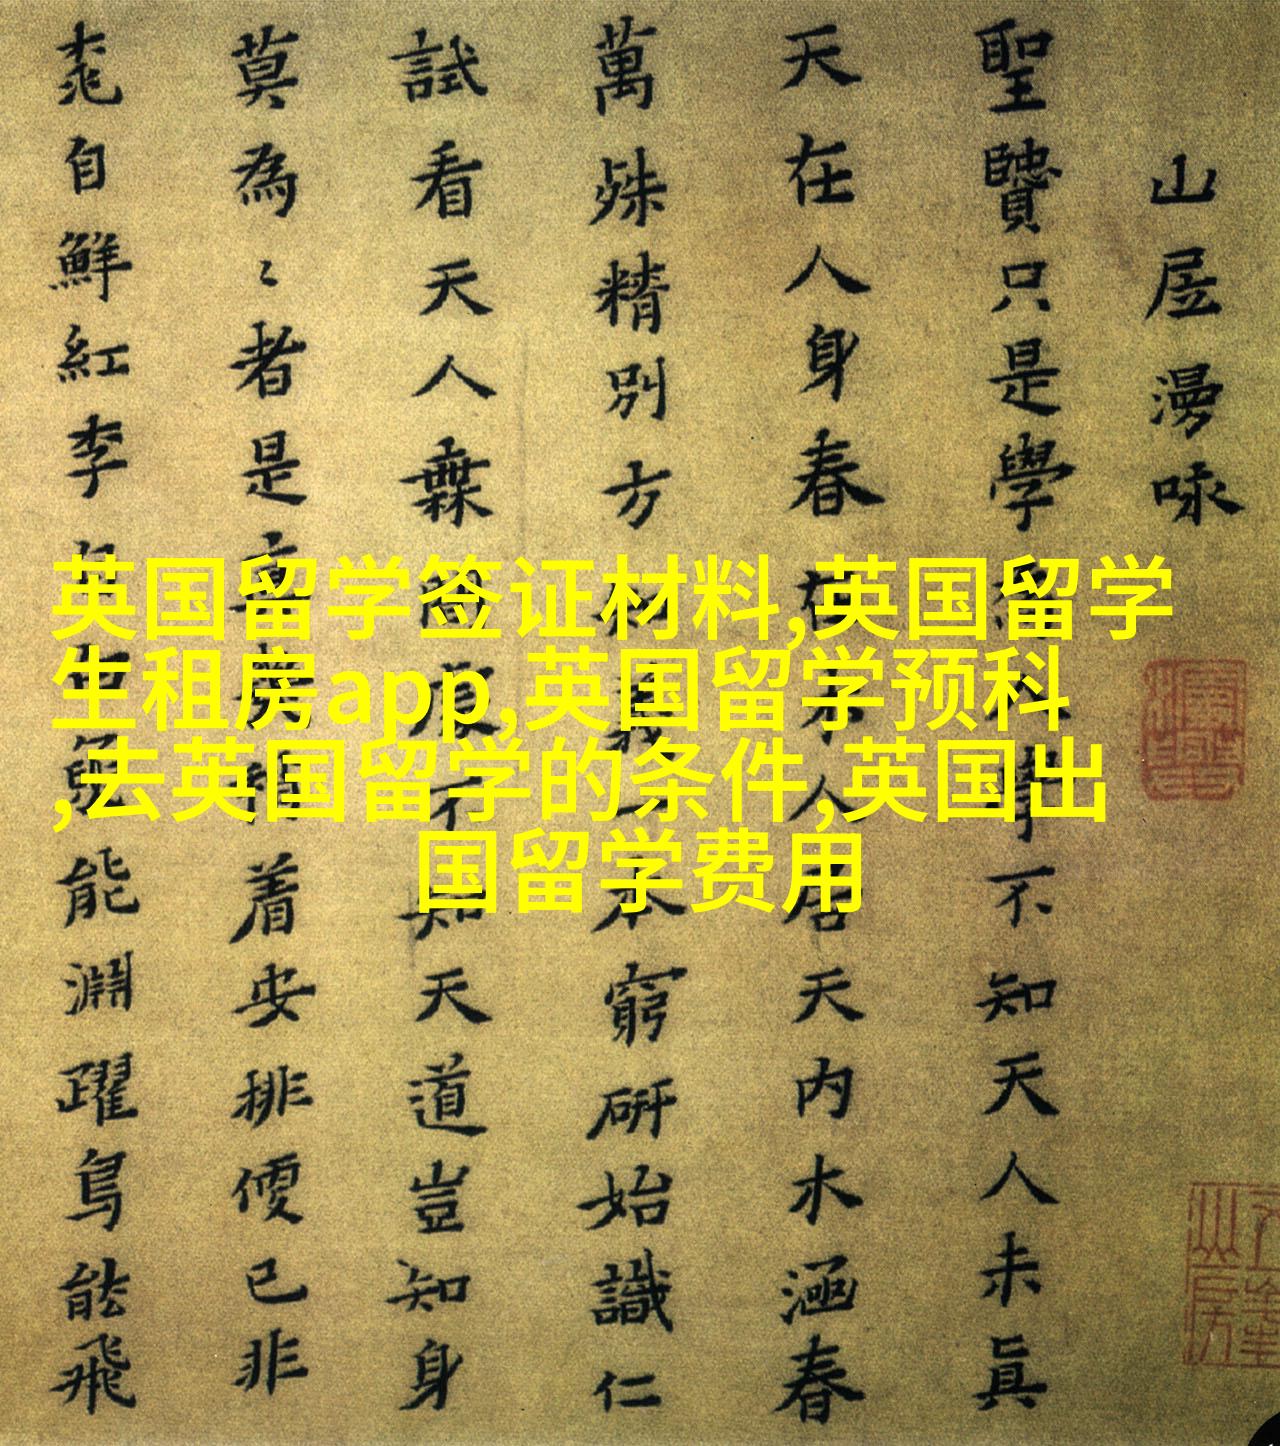 山居漫咏
聖贒只是學 學不知天人未眞
天在人身春在木人居天内木涵春
萬殊精別方 義一本窮研始識仁
試看天人 間 不知天道豈知身
莫為〻者是 着安排便已非
桃自鮮紅李自 魚能淵躍鳥能飛
英国留学签证材料,英国留学
生租房app,英国留学预科
,去英国留学的条件,英国出
国留学费用